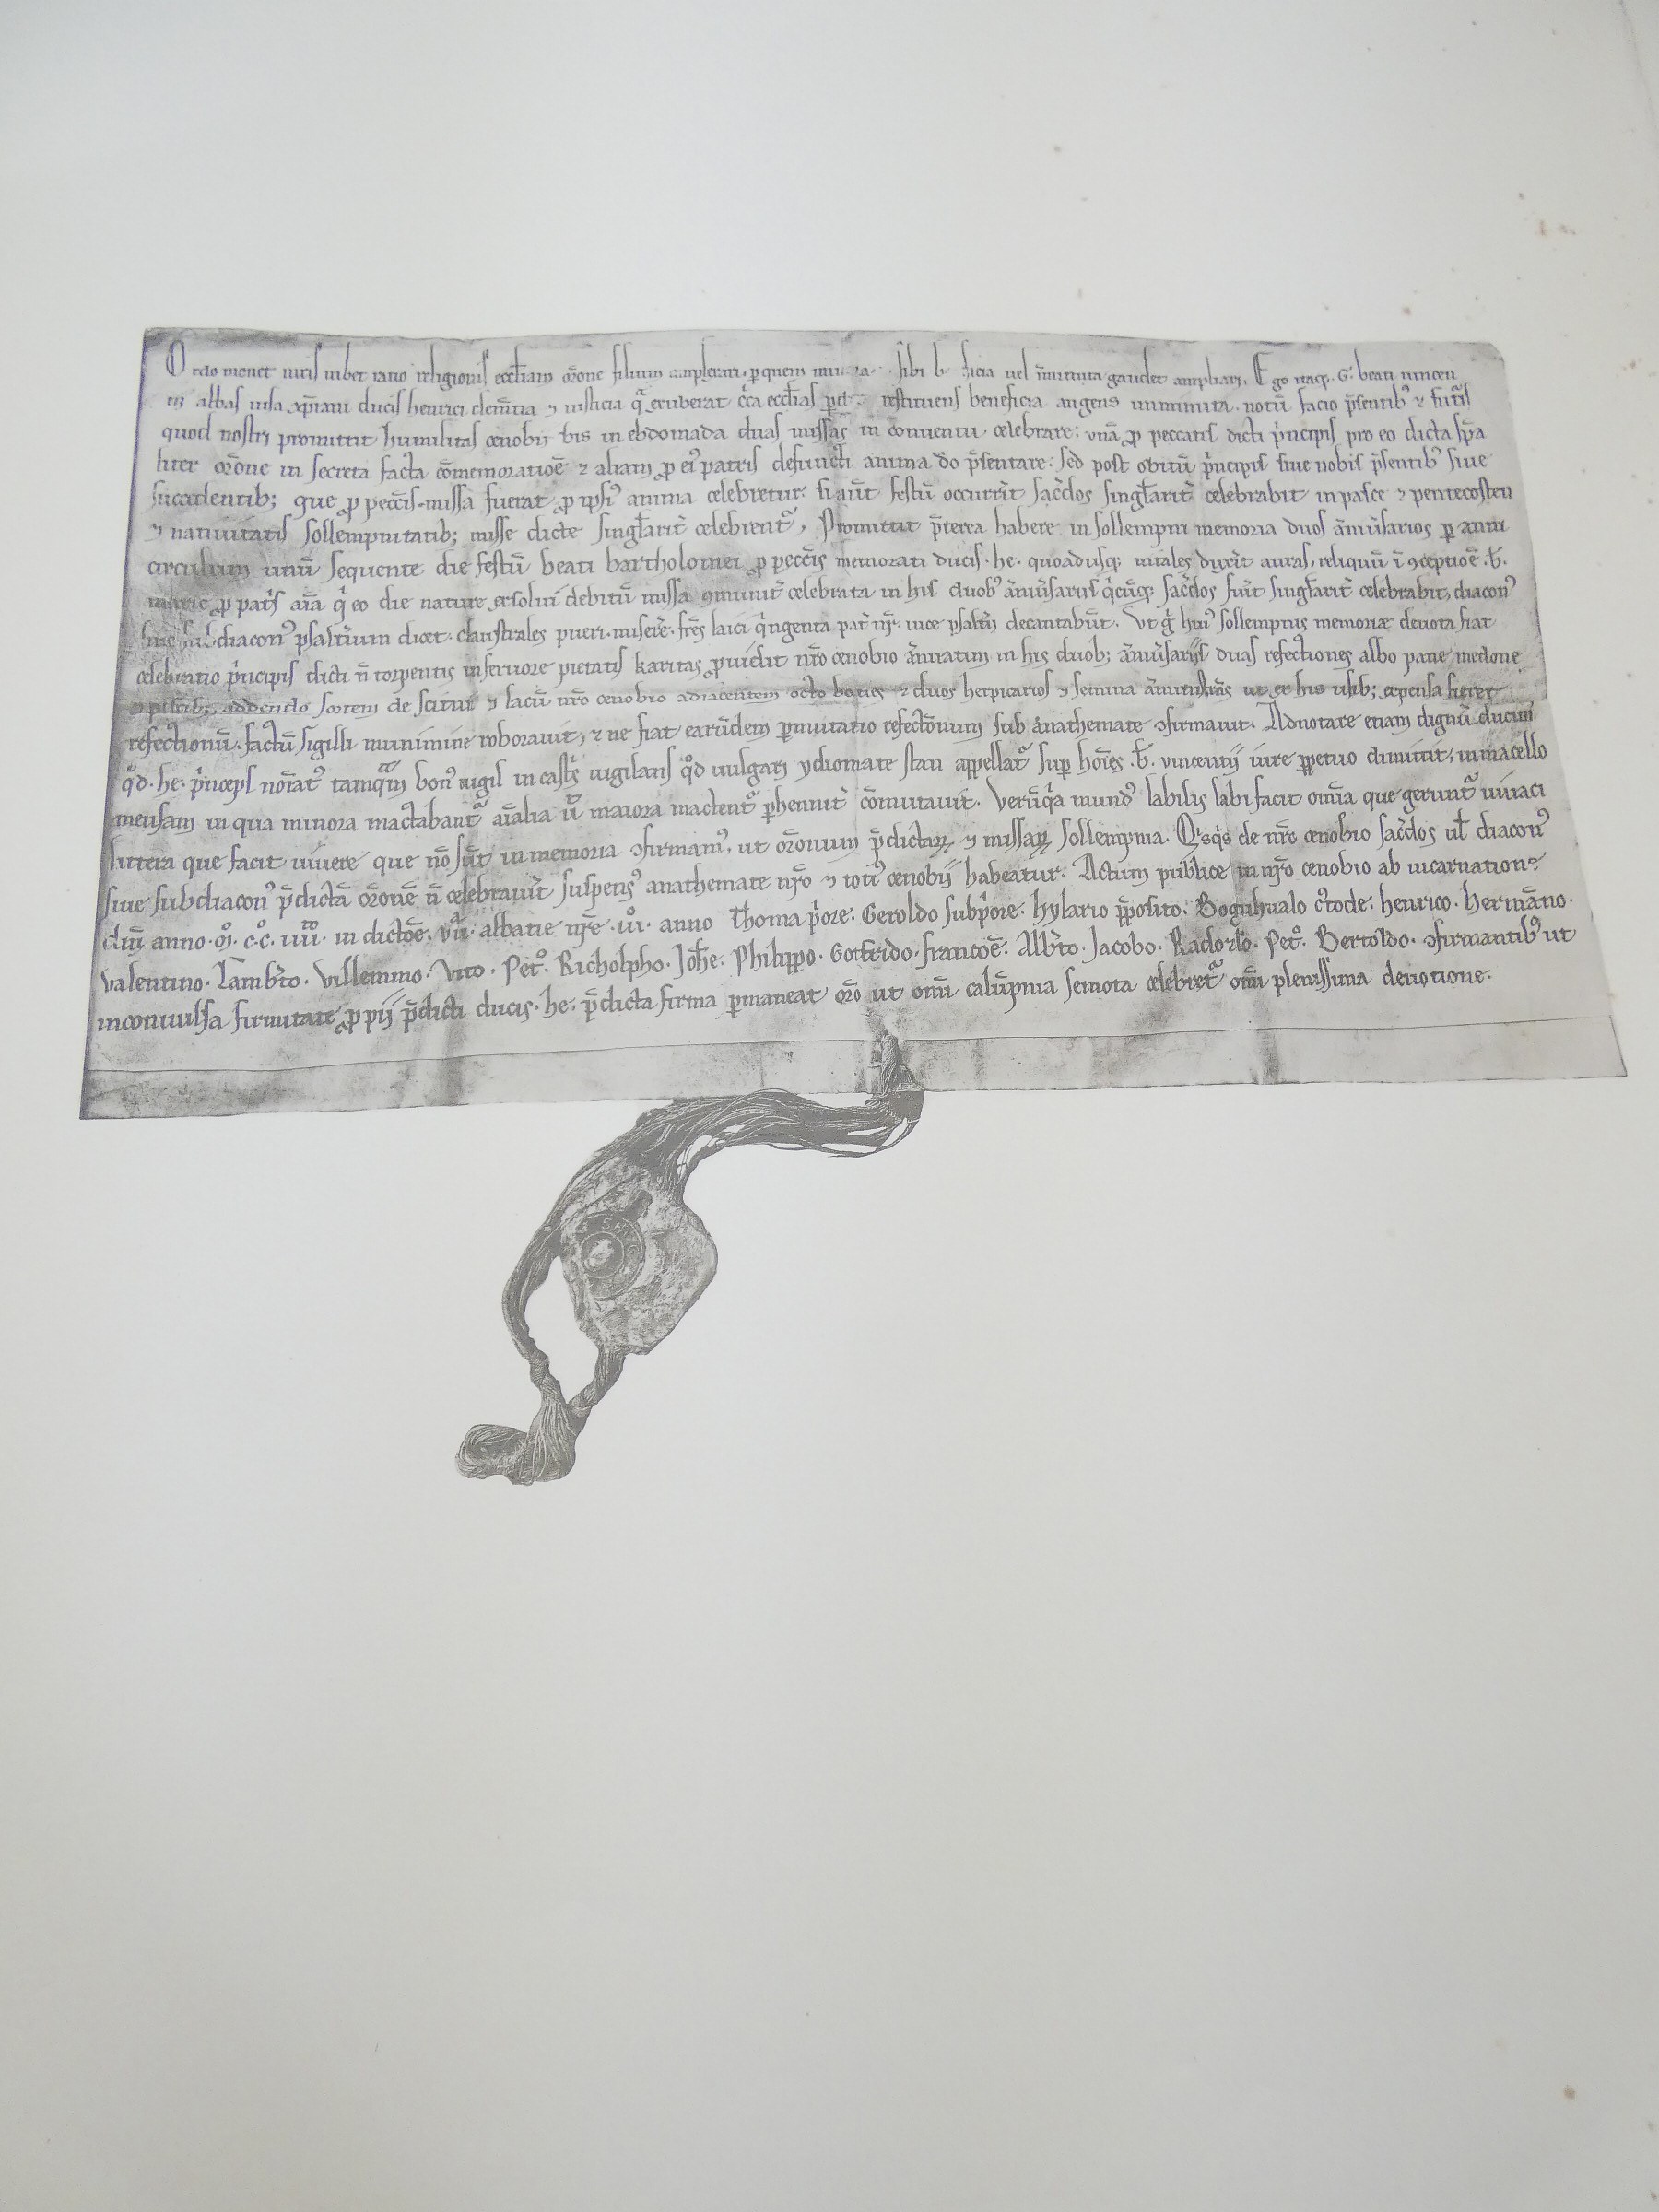 Ordo monet iuris iubet ratio religionis eccl̄iam or̄one filium amplexari. ꝑ quem sibi vel īminuta gaudet ampliari. Ego itaq. G. beati vincen
tii abbas iussa ducis henrici clem̄tia ⁊ iusticia exuberat ecclias restituens beneficia augens inminuta. notū facio p̄sentibꝰ ⁊ futīs
quod nostri promittit humilitas cenobii bis in ebdomada duas missas in conventu celebrare: unā ꝓ peccatis dicti pͥncipis pro eo dicta sp̄a
liter or̄one in secreta facta cōmemoratiōe ⁊ aliam ꝓ eiꝰ patris defuncti anima do p̄sentare: sed post obitū pͥncipis sive nobis p̄sentibꝰ sive
succedentib; que ꝓ pecc̄is missa fuerat ꝓ ipsiꝰ anima celebretur: si aut̄ festū occurrit sac̄dos singlarit̄ celebrabit in pasce ⁊ pentecosten
⁊ nativitatis sollempnitatib; misse dicte singlarit̄ celebrent᷑, Promittit p̄terea habere in sollempni memoria duos ānivsarios ꝑ anni
circulum unū sequente die festū beati bartholomei ꝓ pecc̄is memorati ducis. he. quoadusq; vitales duxit auras, reliquū ī ꝯceptiōe .b̄.
marie ꝓ patͥs aīa qͥ eo die nature exsolvi debitū missa ꝯmunit̄ celebrata in his duobꝰ ānivsariis qͥcūq; sac̄dos fuit singlarit̄ celebrabit, diaconꝰ
sive subdiaconꝰ psaltīum dicet. claustrales pueri. miserē. fr̄es laici qͥngenta pat̄ nr̄. vice psaltīi decantabūt. Ut gͥ huiꝰ sollempnis memoriæ devota fiat
celebratio pͥncipis dicti n̄ torpentis in fervore pietatis karitas ꝓvidit nr̄o cenobio ānuatim in his duob; ānivsariis duas refectiones albo pane medone
⁊ piscib; addendo sortem de scitini ⁊ lacū nr̄o cenobio adiacentem octo boves ⁊ duos herpicarios ⁊ semina ut ex his usib; expensa fieret
refectionū. factū sigilli munimine roboravit, ⁊ ne fiat earūdem ꝑmutatio refectōnum sub anathemate ꝯfirmavit. Adnotare etiam dignū ducim̄
qͦd. he. pͥnceps nōiatꝰ tamqᵃm bonꝰ vigil in cast̄s vigilans qͦd vulgari ydiomate stan appellat᷑ suꝑ hōies .b̄. vincentii iure ꝑpetuo dimisit, in macello
mensam in qua minora mactabant᷑ aīalia ut maiora mactent᷑ ꝑhennit̄ cōmutavit. Verū qͥa mundꝰ labilis labi facit om̄ia que gerunt᷑ vivaci
littera que facit vivere que nō sūt in memoria ꝯfirmamꝰ, ut or̄onum p̄dictaꝝ ⁊ missaꝝ sollempnia. Qͥsqͥs de nr̄o cenobio sac̄dos ul̄ diaconꝰ
sive subdiaconꝰ p̄dictā or̄onē n̄ celebravit suspensꝰ anathemate nr̄o ⁊ totiꝰ cenobii habeatur. Actum publice in nr̄o cenobio ab incarnatione
anno .mͦ. cͦ.cͦ. iiiiͭͦ. in dictōe. viiᵃ. abbatie nr̄e .viͦ. anno Thoma pͥore. Geroldo subpͥore. hylario p̄posito. Boguhvalo ctode. henrico. hermāno.
valentino. Lamb̄to. Villelmino. Vito. Petͦ. Richolpho. Joh̄e. Philippo. Gotfrido. francoē. Alb̄to. Jacobo. Radozlo. Petͦ. Bertoldo. ꝯfirmantibꝰ ut
inconvulsa firmitate ꝓ pii p̄dicti ducis. he. p̄dicta firma ꝑmaneat or̄o ut om̄i calūpnia semota celebret᷑ om̄i plenissima devotione.